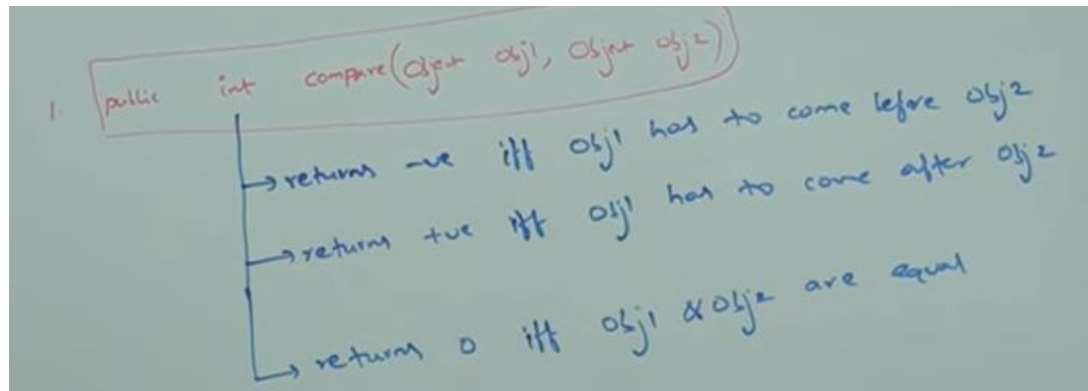 1. public int compare(Object obj1, Object obj2)
→ returns -ve iff obj1 has to come before obj2
→ returns +ve iff obj1 has to come after obj2
→ returns 0 iff obj1 & obj2 are equal